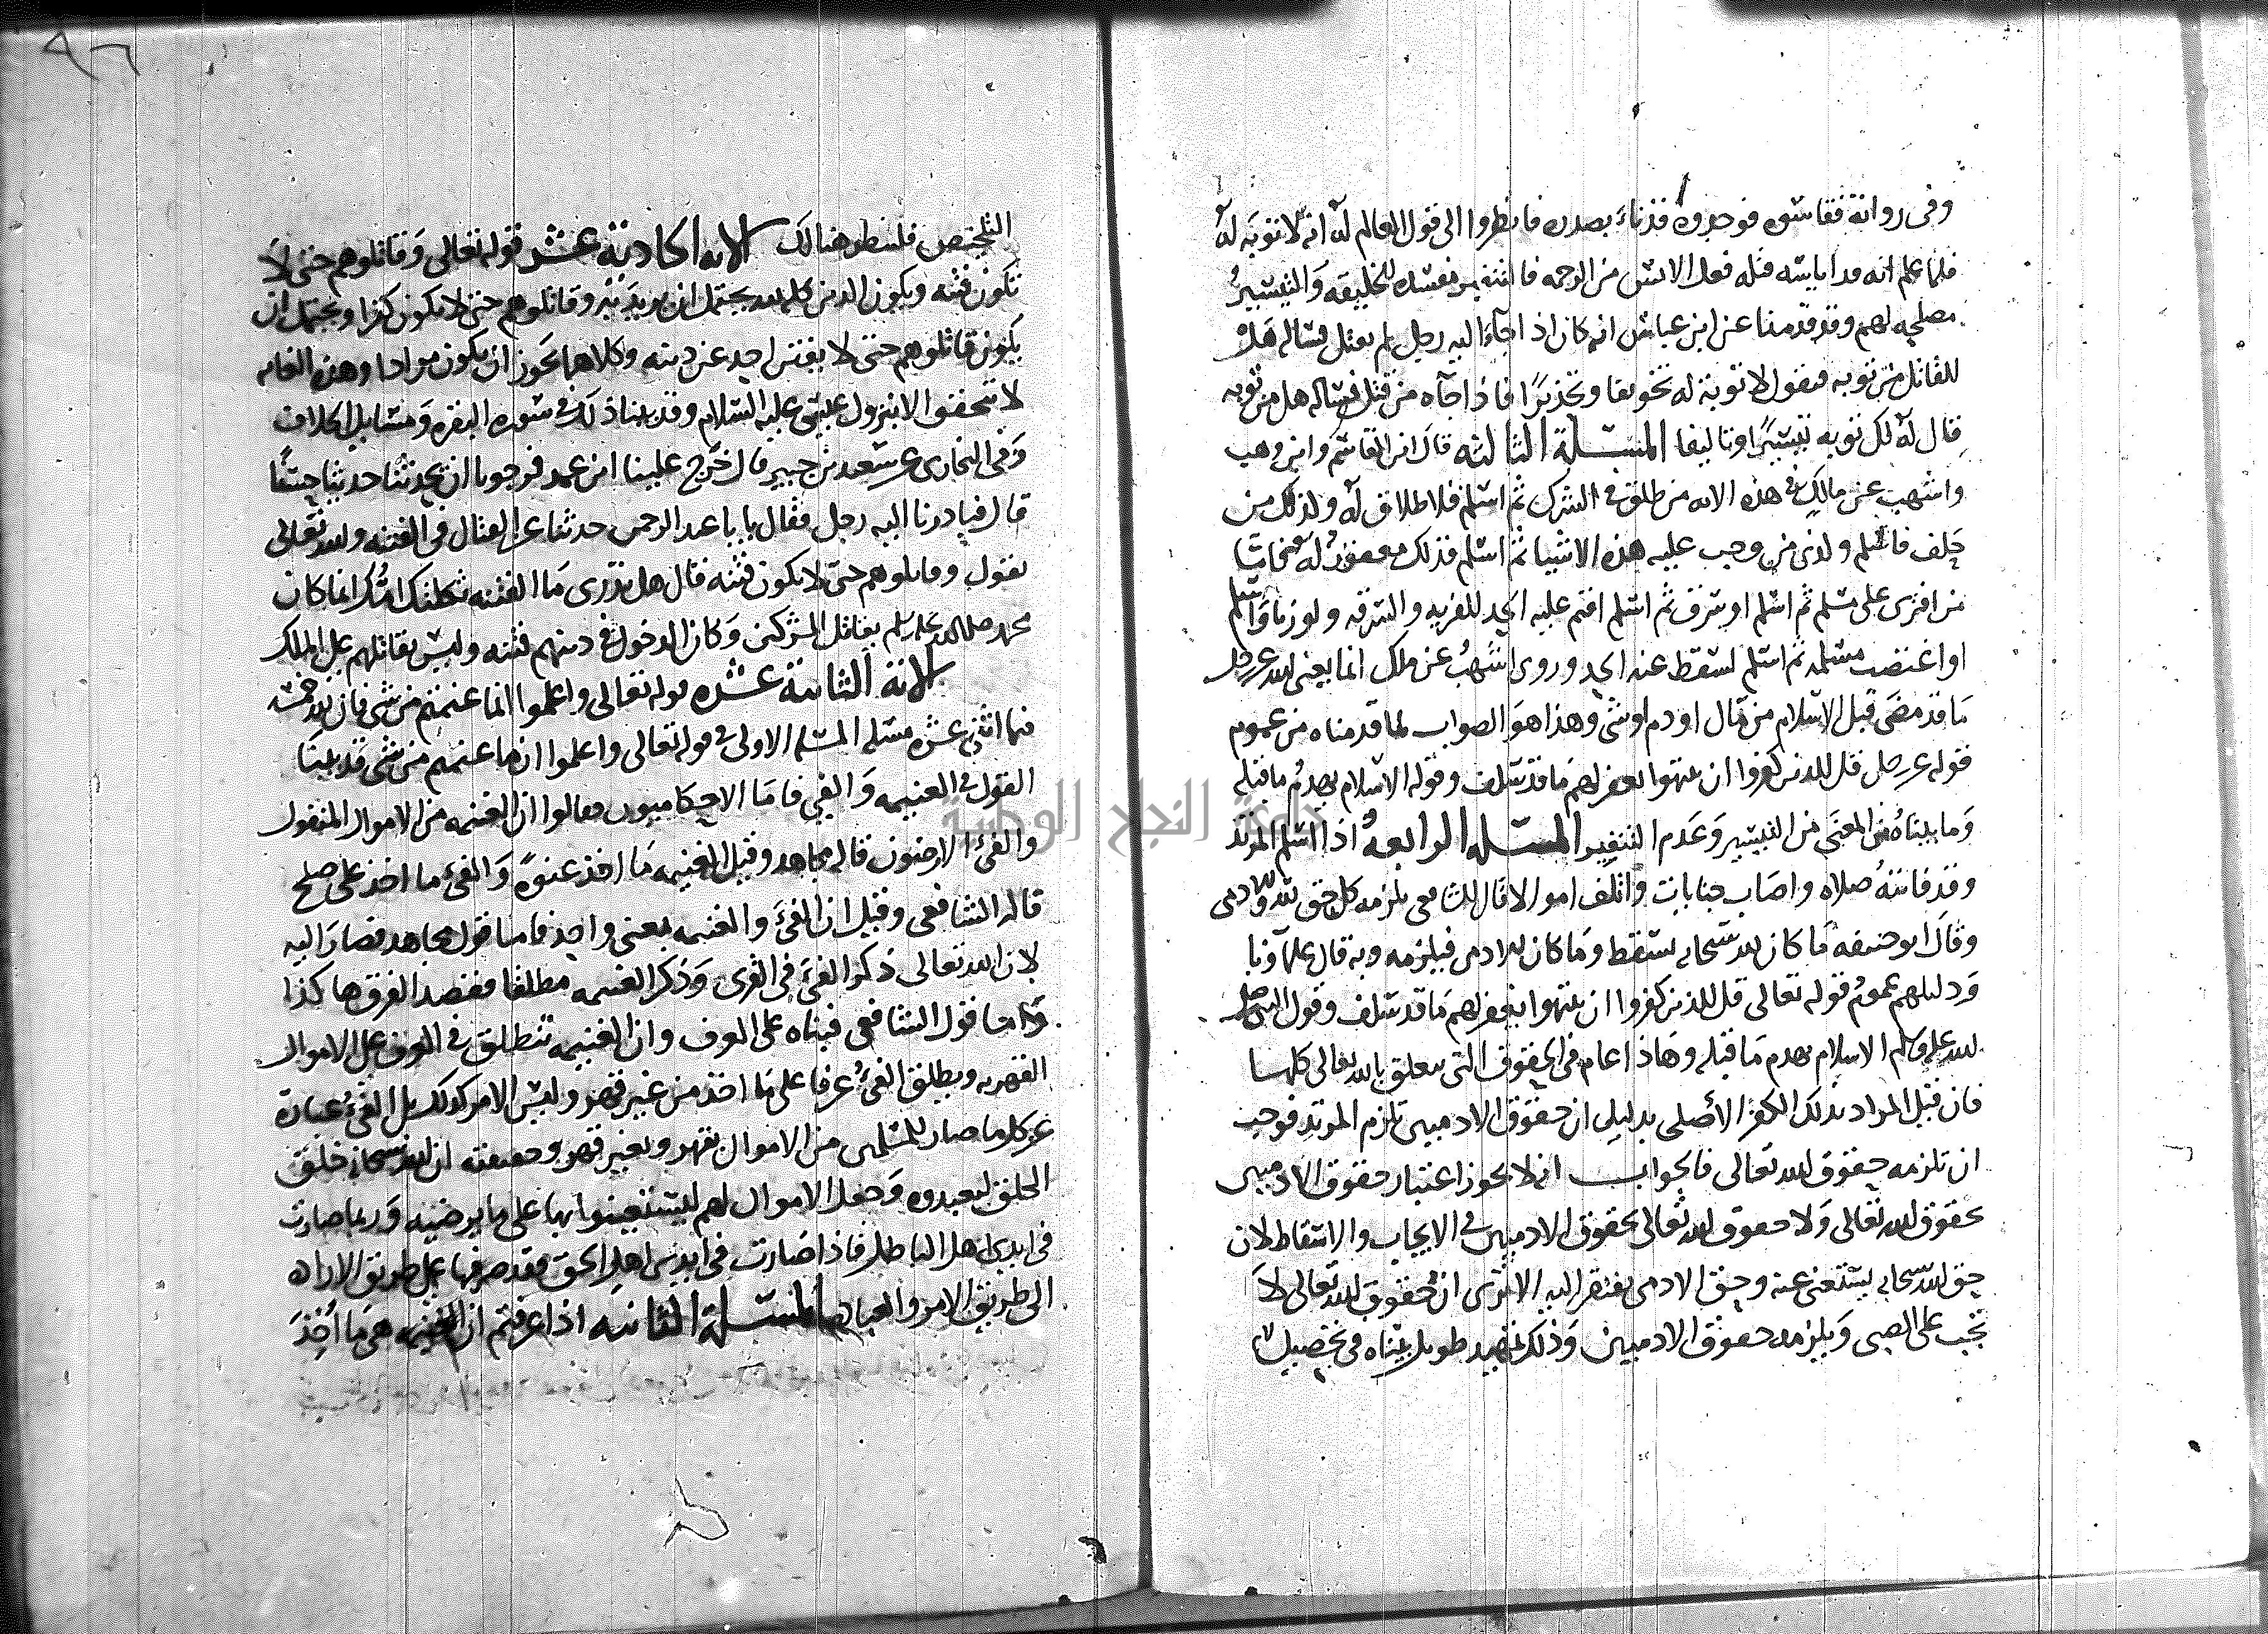 وفى رواية فقاسوه فوجدوه قد ناء بصدره فانظروا الى قول العالم له انه لا توبة له
فلما علم انه قد ايأسه قتله فعل الايس من الرحمه فالتنفير مفسده للخليقه والتيسير
مصلحه لهم وقد قدمنا عن ابن عباس انه كان اذا جآء اليه رجل لم يقتل فسأله هل
للقاتل من توبه فيقول لا توبة له تخويفا وتحذيرًا فاذا جآه من قتل فسأله هل من توبه
قال له لك توبه تيسيرًا وتاليفا المسئلة الثالثه قال ابن القاسم وابن وهب
واشهب عن مالك في هذه الايه من طلق في الشرك ثم اسلم فلا طلاق له وكذلك من
حلف فاسلم ولا من وجب عليه هذه الاشيا ثم اسلم فذلك مغفور له فاما
من افترى على مسلم ثم اسلم او سرق ثم اسلم اقيم عليه الحد للفريه والسرقه ولو زنا واسلم
او اغتصب مسلمه ثم اسلم لسقط عنه الحد وروى اشهب عن ملك انما يعنى الله عز وجل
ما قد مضى قبل الاسلام من مال او دم او شى وهذا هو الصواب لما قدمناه من عموم
قوله عز وجل قل للذين كفروا ان ينتهوا يغفر لهم ما قد سلف وقوله الاسلام يهدم ما قبله
وما بيناه من المعنى من التيسير وعدم التنفير المسئله الرابعه اذا اسلم المرتد
وقد فاتته صلاه واصاب جنايات واتلف اموالا قال الشافعى يلزمه كل حق لله وللادمى
وقال ابو حنيفه ما كان لله سبحانه يسقط وما كان للادمى فيلزمه وبه قال علمآونا
ودليلهم عموم قوله تعالى قل للذين كفروا ان ينتهوا يغفر لهم ما قد سلف وقول النبى صلى
الله عليه وسلم الاسلام يهدم ما قبله وهاذا عام في الحقوق التى تتعلق بالله تعالى كلها
فان قيل المراد بذلك الكفر الأصلى بدليل ان حقوق الادميين تلزم المرتد فوجب
ان تلزمه حقوق الله تعالى فالجواب انه لا يجوز اعتبار حقوق الادميين
بحقوق الله تعالى ولا حقوق الله تعالى بحقوق الادميين في الايجاب والاسقاط لان
حق الله سبحانه يستغنى عنه وحق الادمى يفتقر اليه الا ترى ان حقوق الله تعالى لا
تجب على الصبى ويلزمه حقوق الادميين وذلك تمهيد طويل بيناه فى تخصيص
التلخيص فلينظر هنالك الايه الحادية عشر قوله تعالى وقاتلوهم حتى لا
تكون فتنه ويكون الدين كله لله يحتمل ان يريد به وقاتلوهم حتى لا يكون كفر ويحتمل ان
يكون قاتلوهم حتى لا يفتن احد عن دينه وكلاهما يجوز ان يكون مرادا وهذه الغايه
لا تتحقق الا بنزول عيسى عليه السلام وقد بينا ذلك في سوره البقره ومسايل الخلاف
وفى البخارى عن سعيد بن جبير قال خرج علينا ابن عمر فرجونا ان يحدثنا حديثا حسنًا
قال فبادرنا اليه رجل فقال يا با عبد الرحمن حدثنا عن القتال فى الفتنه والله تعالى
يقول وقاتلوهم حتى لا تكون فتنه فقال هل تدرى ما الفتنه ثكلتك امك انما كان
محمد صلى الله عليه وسلم يقاتل المشركين وكان الدخول في دينهم فتنه وليس بقتالهم على الملك
الاية الثانية عشره قوله تعالى واعلموا انما غنمتم من شى فان لله خمسه
فيها اثنتى عشره مسئله المسئله الاولى في قوله تعالى واعلموا ان ما غنمتم من شى قد بينا
القول في الغنيمه والفى فاما الاحكاميون فقالوا ان الغنيمه من الاموال المنقول
والفى الارضون قاله مجاهد وقيل الغنيمه ما اخذ عنوةً والفى ما اخذ على صلح
قاله الشافعى وقيل ان الفى والغنيمه بمعنى واحد فاما قول مجاهد فصار اليه
لان الله تعالى ذكر الفى في القرى وذكر الغنيمه مطلقا ففصد الفرق هاكذا
واما قول الشافعى فبناه على العرف وان الغنيمه تنطلق في العرف على الاموال
القهريه ويطلق الفى عرفا على ما اخذ من غير قهر وليس الامر كذلك بل الفى عبارة
عن كل ما صار للمسلمين من الاموال بقهر وبغير قهر وحقيقته ان الله سبحانه خلق
الخلق ليعبدوه وجعل الاموال لهم ليستعينوا بها على ما يرضيه وربما صارت
فى ايدى اهل الباطل فاذا صارت فى ايدى اهل الحق فقد صرفها عن طريق الاراده
الى طريق الامر والعباده المسئلة الثانيه اذا عرفتم ان الغنيمه هى ما أخذ
جامعة النجاح الوطنية